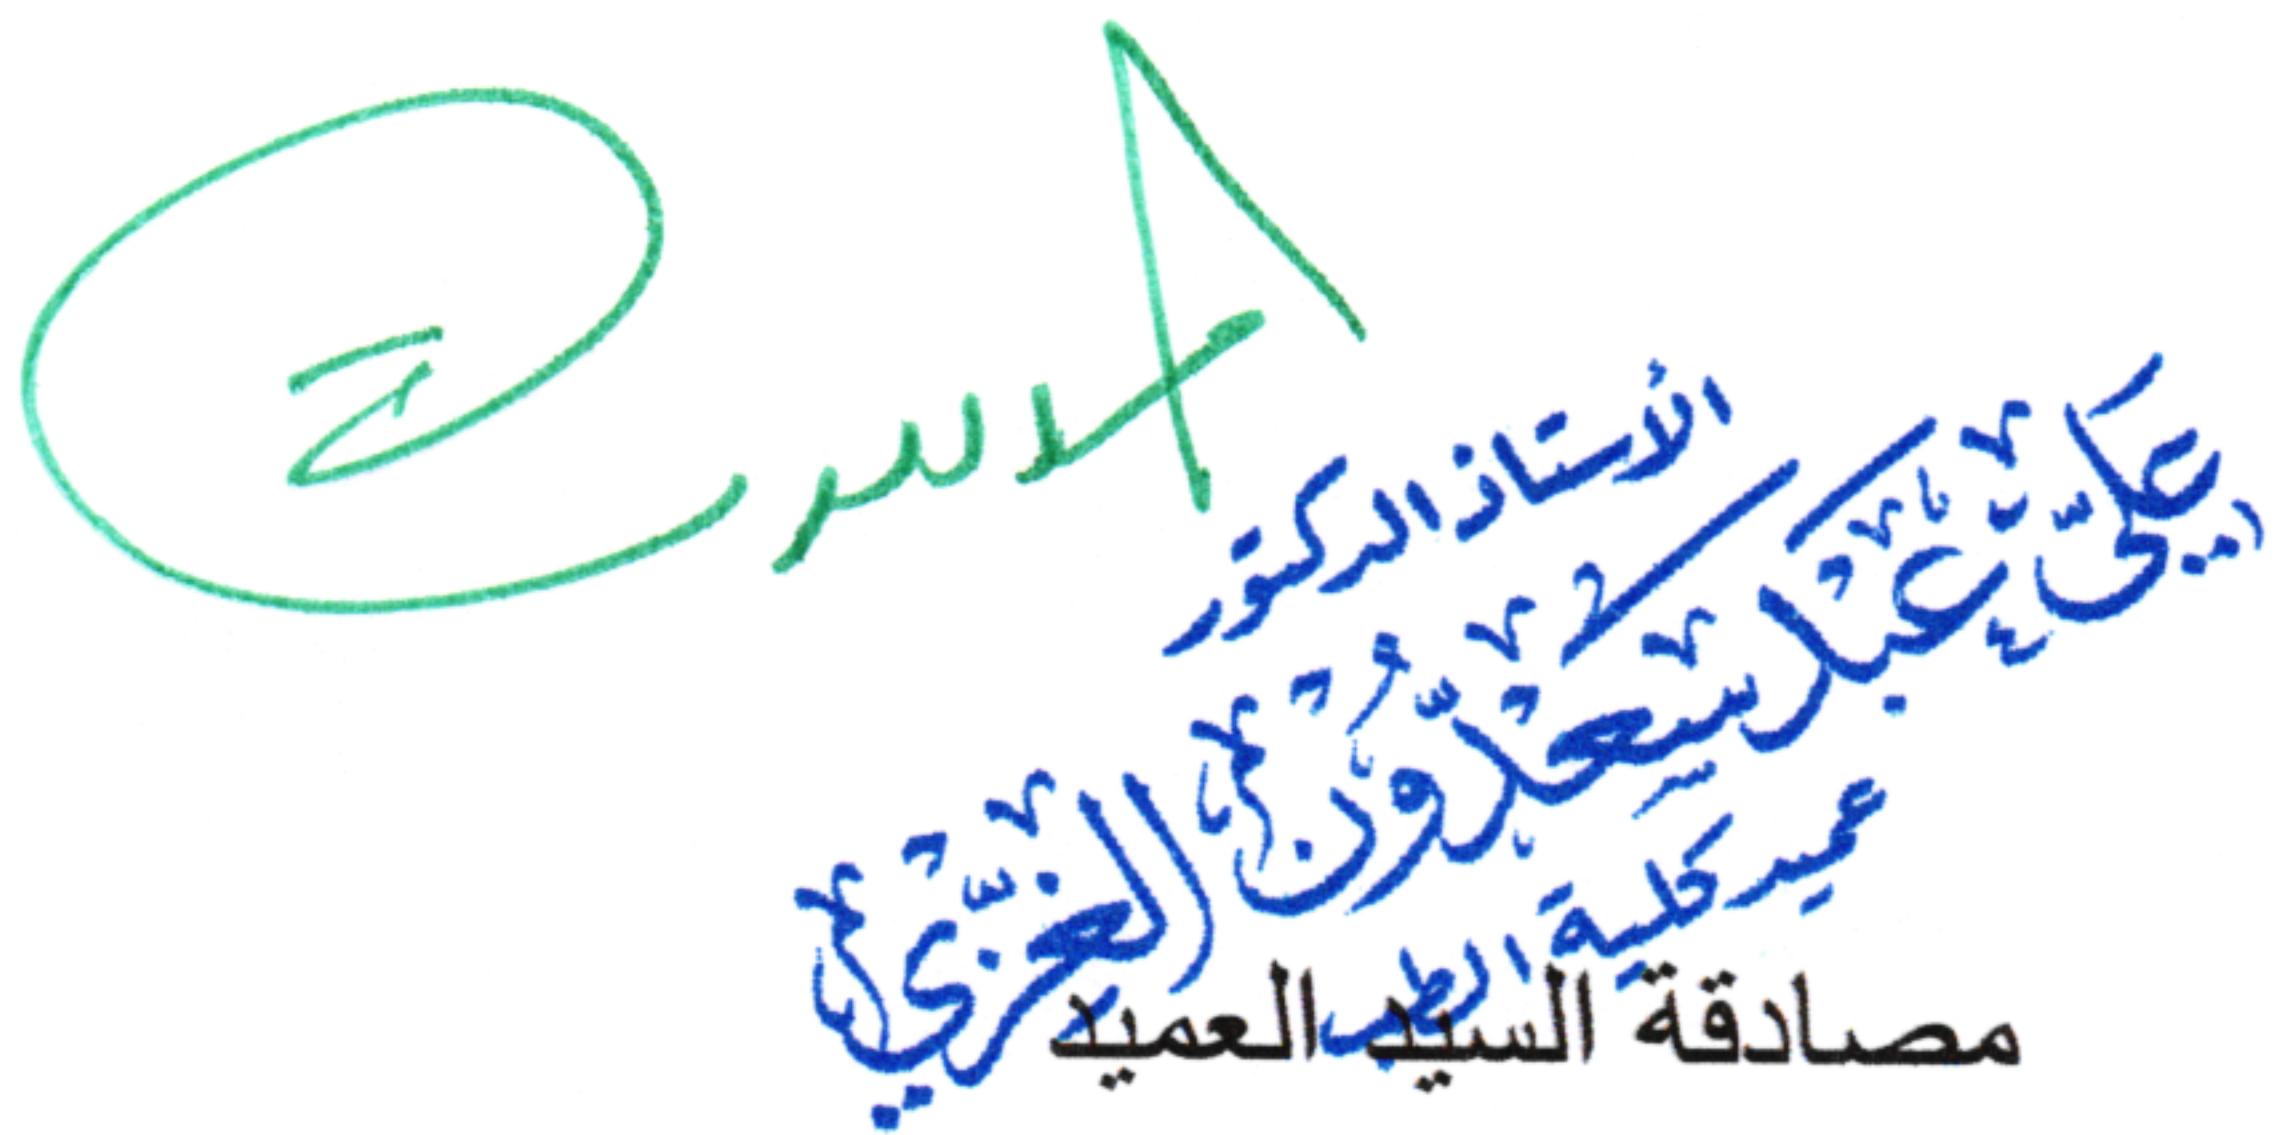 الأستاذ الدكتور
علي عبد سعدون الغزي
عميد كلية الطب
مصادقة السيد العميد